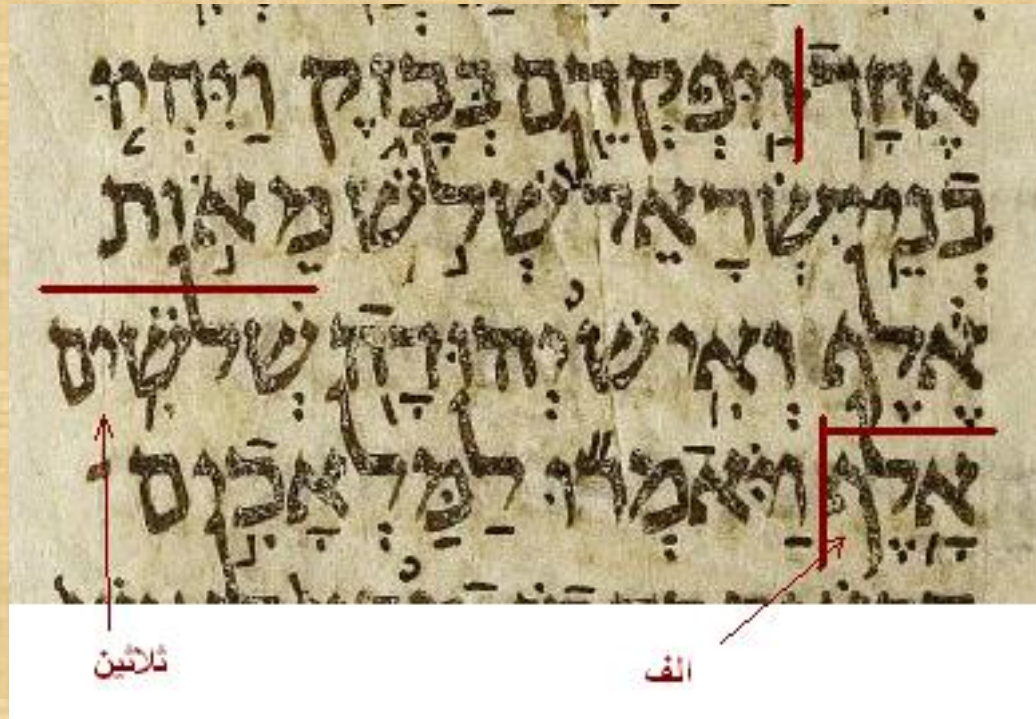 אֶחָד וַיִּפְקְדֵם בְּבָזֶק וַיִּהְיוּ
בְנֵי יִשְׂרָאֵל שְׁלֹשׁ מֵאוֹת
אֶלֶף וְאִישׁ יְהוּדָה שְׁלֹשִׁים
אָלֶף וַיֹּאמְרוּ לַמַּלְאָכִים
الف
ثلاثين